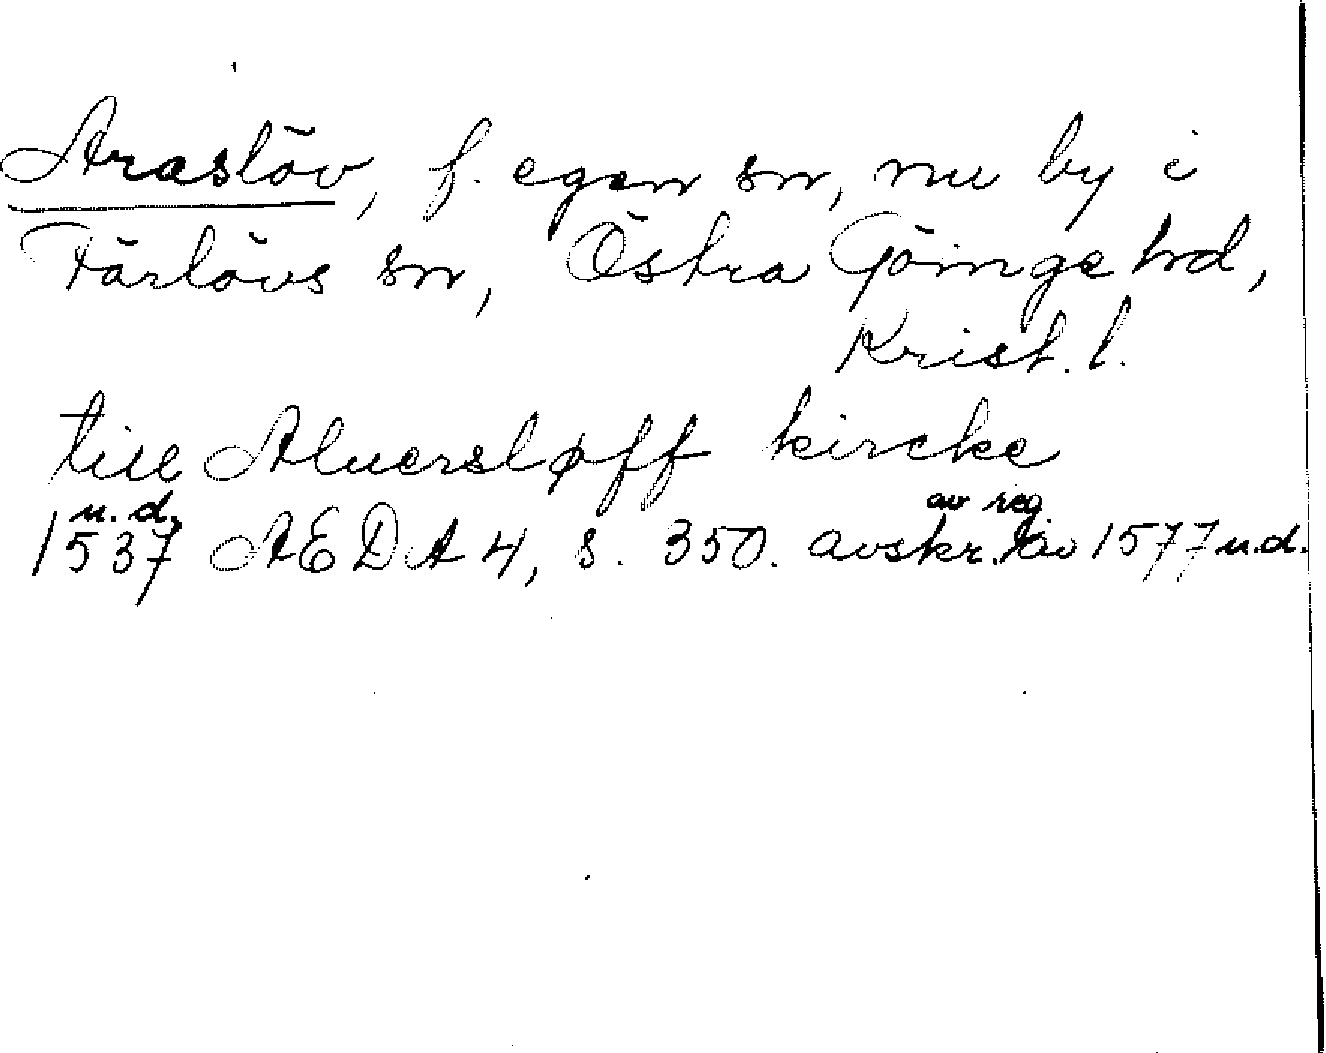 Araslöv, f. egen sn, nu by i
Färlövs sn, Östra Göinge hd,
Krist. l.
till Aluersløff kircke
1537 u.d. AEDA 4, s. 350. avskr. av reg. av 1577 u.d.